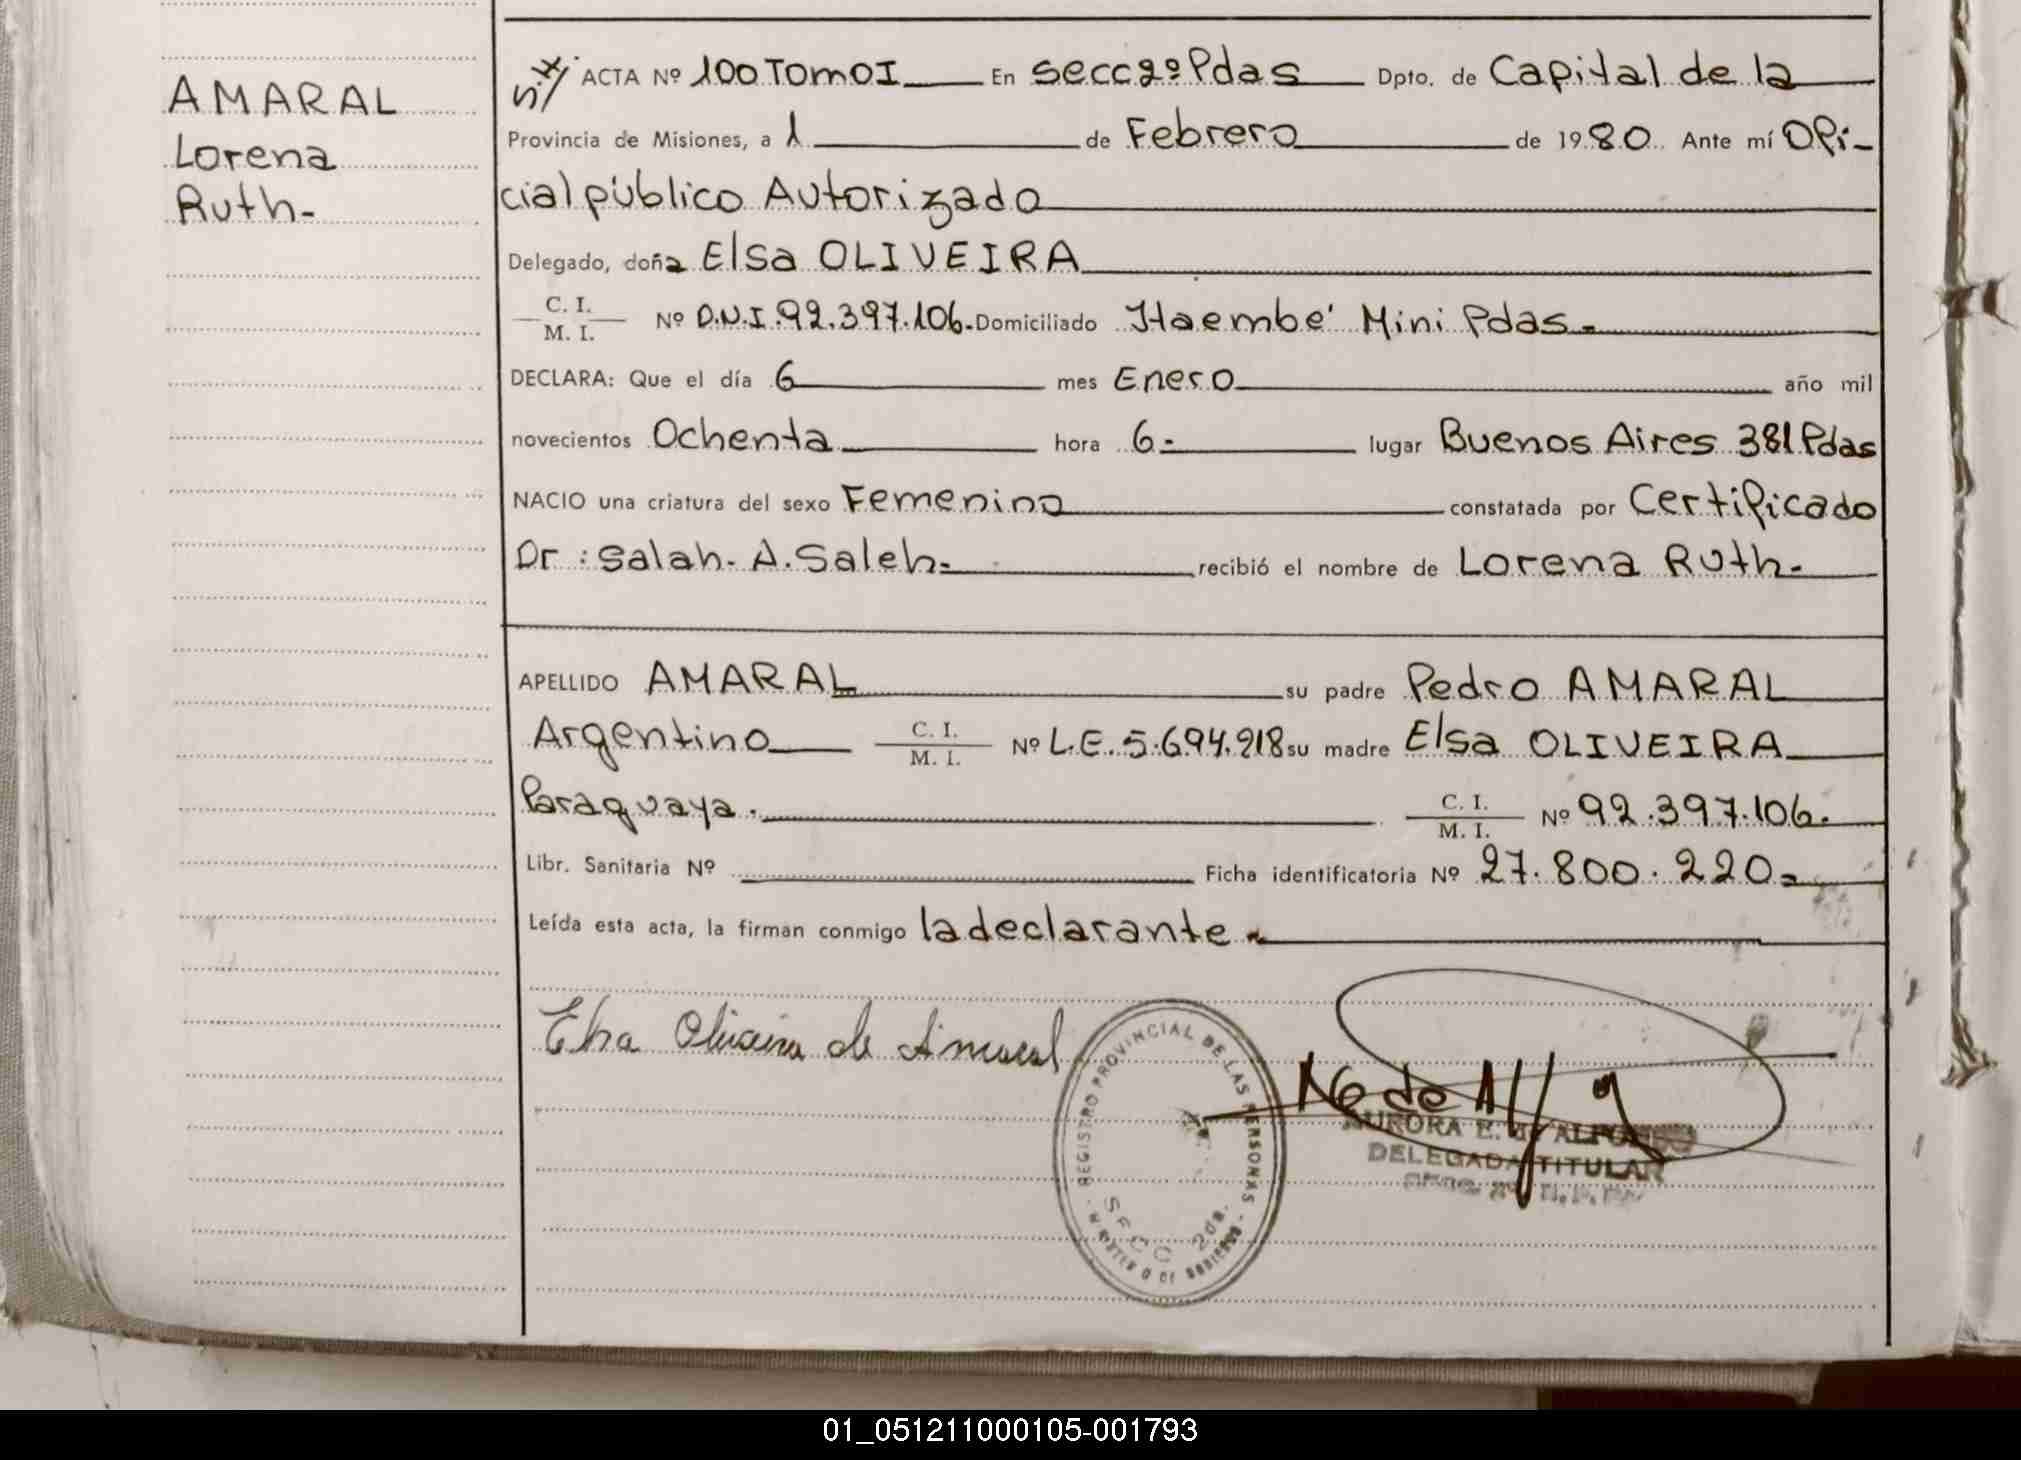 AMARAL
Lorena
Ruth-
S.H. ACTA Nº 100 Tomo I En secc 2º Pdas Dpto. de Capital de la
Provincia de Misiones, a 1 de Febrero de 1980 Ante mí Ofi-
cial público Autorizado
Delegado, doña Elsa OLIVEIRA
C. I.
M. I. Nº D.N.I. 92.397.106. Domiciliado Itaembé Mini Pdas.
DECLARA: Que el día 6 mes Enero año mil
novecientos Ochenta hora 6- lugar Buenos Aires 381 Pdas
NACIO una criatura del sexo Femenino constatada por Certificado
Dr: Salah. A. Saleh- recibió el nombre de Lorena Ruth-
APELLIDO AMARAL su padre Pedro AMARAL
Argentino C. I.
M. I. Nº L.E. 5.694.218 su madre Elsa OLIVEIRA
Paraguaya. C. I.
M. I. Nº 92.397.106.
Libr. Sanitaria Nº Ficha identificatoria Nº 27.800.220-
Leída esta acta, la firman conmigo la declarante-
Elsa Oliveira de Amaral
REGISTRO PROVINCIAL DE LAS PERSONAS
SECC 2da.
MINISTERIO DE GOBIERNO
AURORA E. de ALFONSO
DELEGADA TITULAR
01_051211000105-001793